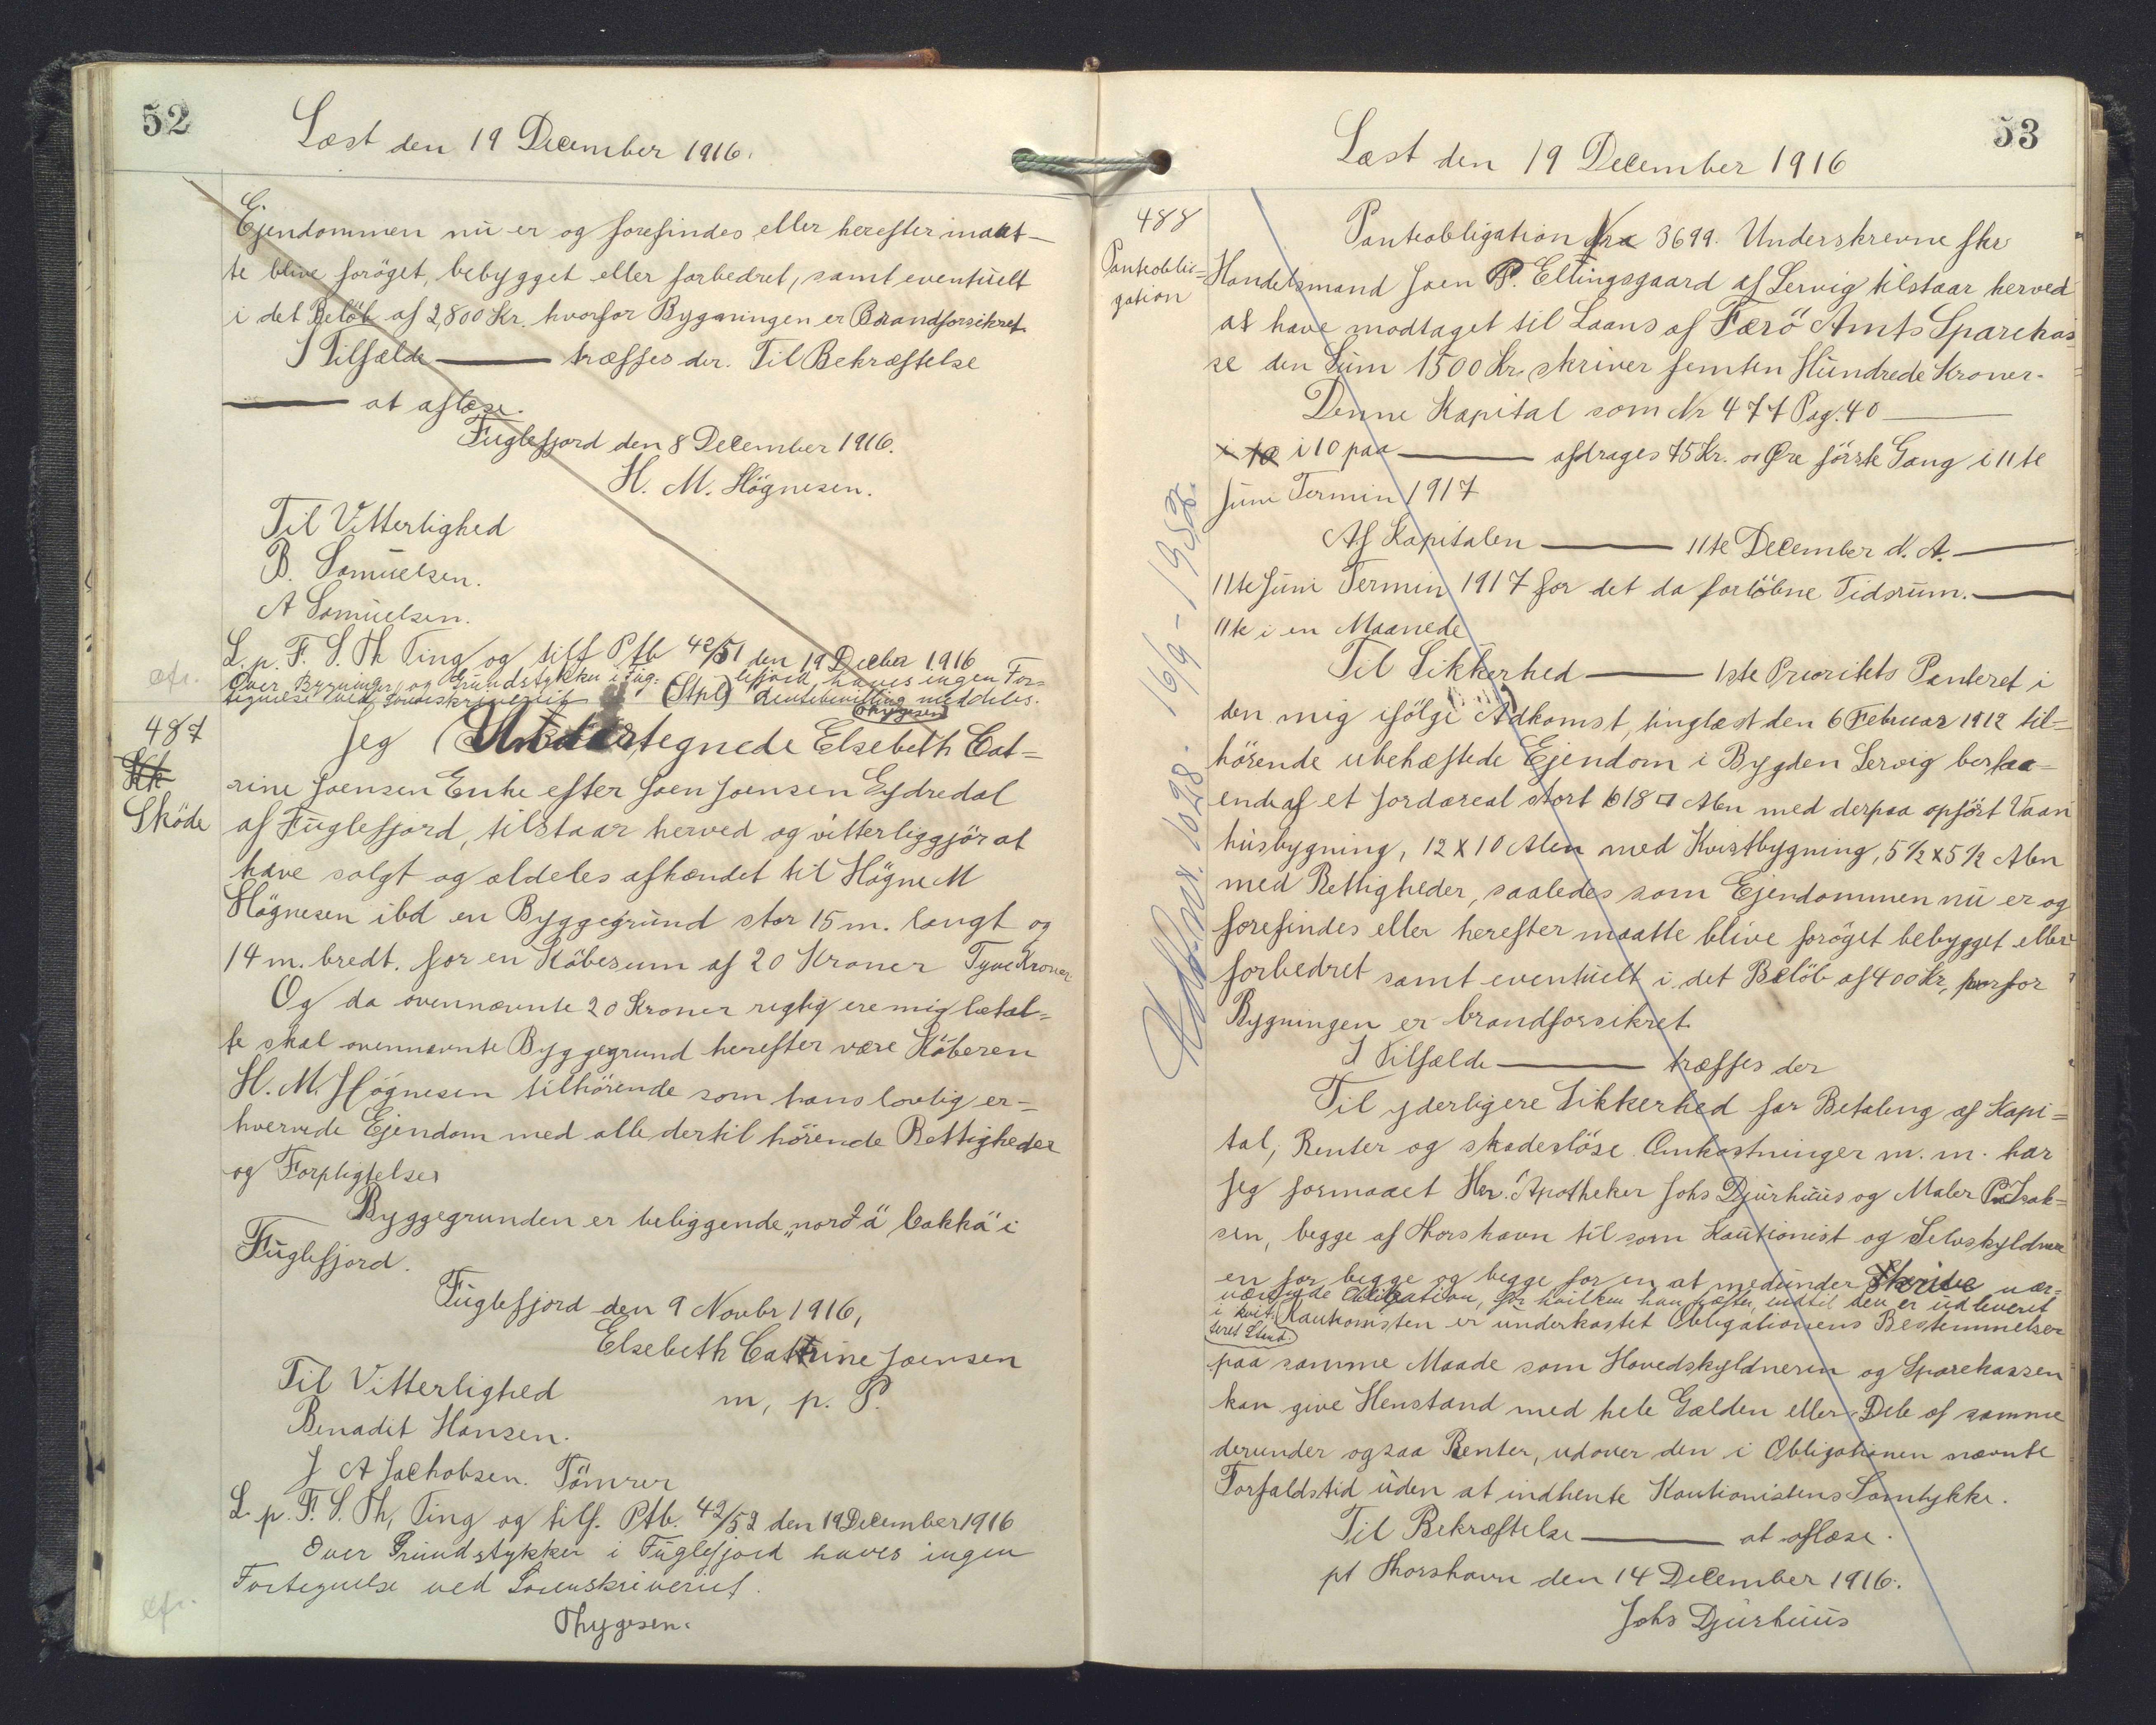 52
Læst den 19 December 1916.
Ejendommen nu er og forefindes eller herefter maat-
te blive forøget, bebygget eller forbedret, samt eventuelt
i det Beløb af 2,800 Kr. hvorfor Bygningen er Brandforsikret
I Tilfælde ——— træffes der. Til Bekræftelse
——— at aflæse.
Fuglefjord den 8 December 1916.
H. M. Högnesen.
Til Vitterlighed
B. Samuelsen.
A Samuelsen.
L. p. F. S. Th Ting og tilf Ptb 42/51 den 19 Decbr 1916
Over Bygninger og Grundstykker i Fug- lefjord haves ingen For-
tegnelse ved Sorenskriveriet (Stpl) Rentebevilling meddeles.
Thygesen
cfr.
487
Skøde
Jeg Undertegnede Elsebeth Cat-
rine Joensen Enke efter Joen Joensen Eydredal
af Fuglefjord, tilstaar herved og vitterliggjør at
have solgt og aldeles afhændet til Högne M
Högnesen ibd en Byggegrund stor 15 m. langt og
14 m. bredt. for en Köbesum af 20 Kroner Tyve Kroner
Og da ovennævnte 20 Kroner rigtig ere mig betal-
te skal ovennævnte Byggegrund herefter være Köberen
H. M. Högnesen tilhörende som hans lovlig er-
hvervede Ejendom med alle dertil hörende Rettigheder
og Forpligtelser
Byggegrunden er beliggende „nord á bakká" i
Fuglefjord.
Fuglefjord den 9 Novbr 1916,
Elsebeth Cathrine Joensen
m, p. P.
Til Vitterlighed
Benadit Hansen.
J A Jachobsen. Tömrer
L. p. F. S. Th, Ting og tilf. Ptb. 42/52 den 19 December 1916
Over Grundstykker i Fuglefjord haves ingen
Fortegnelse ved Sorenskriveriet.
Thygesen.
cfr.
53
Læst den 19 December 1916
488
Panteobli-
gation
Panteobligation 3699. Underskrevne
Handelsmand Joen P. Ellingsgaard af Lervig tilstaar herved
at have modtaget til Laans af Færö Amts Sparekas
se den Sum 1500 Kr. skriver femten Hundrede Kroner.
Denne Kapital som Nr 477 Pag. 40 ———
i 10 paa ——— afdrages 75 Kr. 00 Øre förste Gang i 11te
Juni Termin 1917
Af Kapitalen ——— 11te December d. A. ———
11te Juni Termin 1917 for det da forlöbne Tidsrum. ———
11te i en Maanede
Til Sikkerhed ——— 1ste Prioritets Panteret i
den mig ifölge Adkomst, tinglæst den 6 Februar 1912 til-
hörende ubehæftede Ejendom i Bygden Lervig bestaa-
ende af et Jordareal stort 618 □ Alen med derpaa opfört Vaan
husbygning, 12 x 10 Alen med Kvistbygning, 5 1/2 x 5 1/2 Alen
med Rettigheder, saaledes som Ejendommen nu er og
forefindes eller herefter maatte blive foröget bebygget eller
forbedret samt eventuelt i det Belöb af 400 Kr, hvorfor
Bygningen er brandforsikret.
I Tilfælde ——— træffes der
Til yderligere Sikkerhed for Betaling af Kapi-
tal, Renter og skadeslöse Omkostninger m. m. har
jeg formaaet Hr. Apotheker Johs Djurhuus og Maler P Isak-
sen, begge af Thorshavn til som Kautionist og Selvskyldnere
en for begge og begge for en at medunder nær-
værende Obligation, for hvilken han hæfter, indtil den er udleveret
i kvit- Kautionisten er underkastet Obligationens Bestemmelser
teret Stand
paa samme Maade som Hovedskyldneren og Sparekassen
kan give Henstand med hele Gælden eller Dele af samme
derunder ogsaa Renter, udover den i Obligationen nævnte
Forfaldstid uden at indhente Kautionistens Samtykke.
Til Bekræftelse ——— at aflæse.
pt Thorshavn den 14 December 1916.
Johs Djurhuus
16/9-1952.